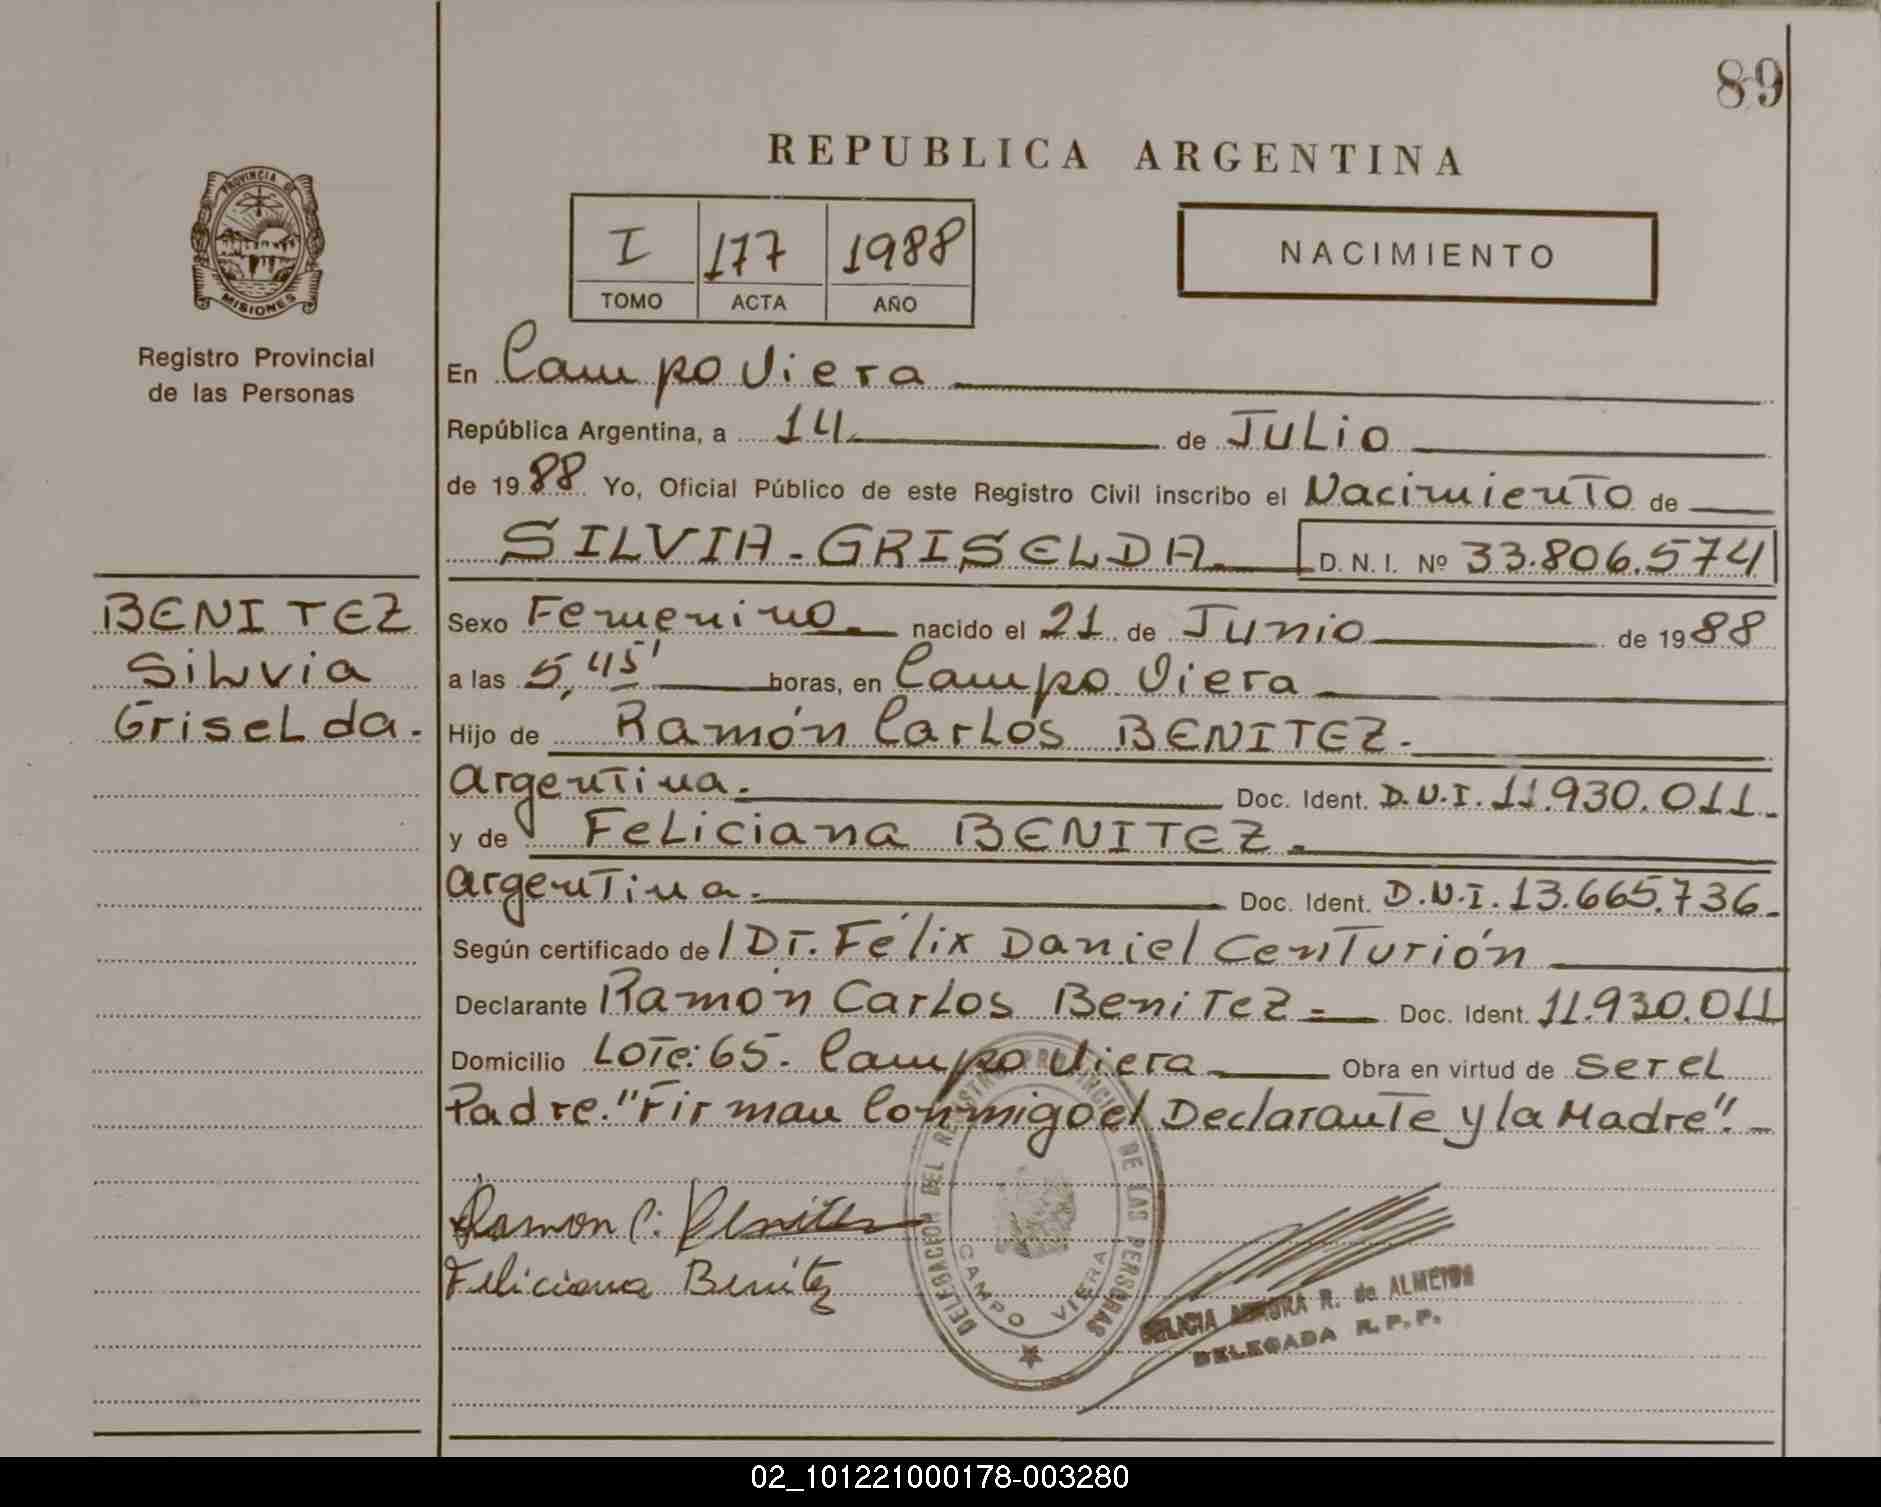 89
REPUBLICA ARGENTINA
PROVINCIA DE
MISIONES
Registro Provincial
de las Personas
I 177 1988
TOMO ACTA AÑO
NACIMIENTO
En Campo Viera
República Argentina, a 14 de Julio
de 1988 Yo, Oficial Público de este Registro Civil inscribo el Nacimiento de
SILVIA-GRISELDA D. N. I. Nº 33.806.574
BENITEZ
Silvia
Griselda.
Sexo Femenino nacido el 21 de Junio de 1988
a las 5,45' horas, en Campo Viera
Hijo de Ramón Carlos BENITEZ.
argentina. Doc. Ident. D.N.I. 11.930.011
y de Feliciana BENITEZ.
argentina. Doc. Ident. D.N.I. 13.665.736
Según certificado de / Dr. Félix Daniel Centurión
Declarante Ramón Carlos Benitez Doc. Ident. 11.930.011
Domicilio Lote: 65. Campo Viera Obra en virtud de ser el
Padre. "Firman Conmigo el Declarante y la Madre".-
Ramon C. Benitez
Feliciana Benítez
DELEGACION DEL REGISTRO PROVINCIAL DE LAS PERSONAS
CAMPO VIERA
FELICIA AURORA R. de ALMEIDA
DELEGADA R. P. P.
02_101221000178-003280